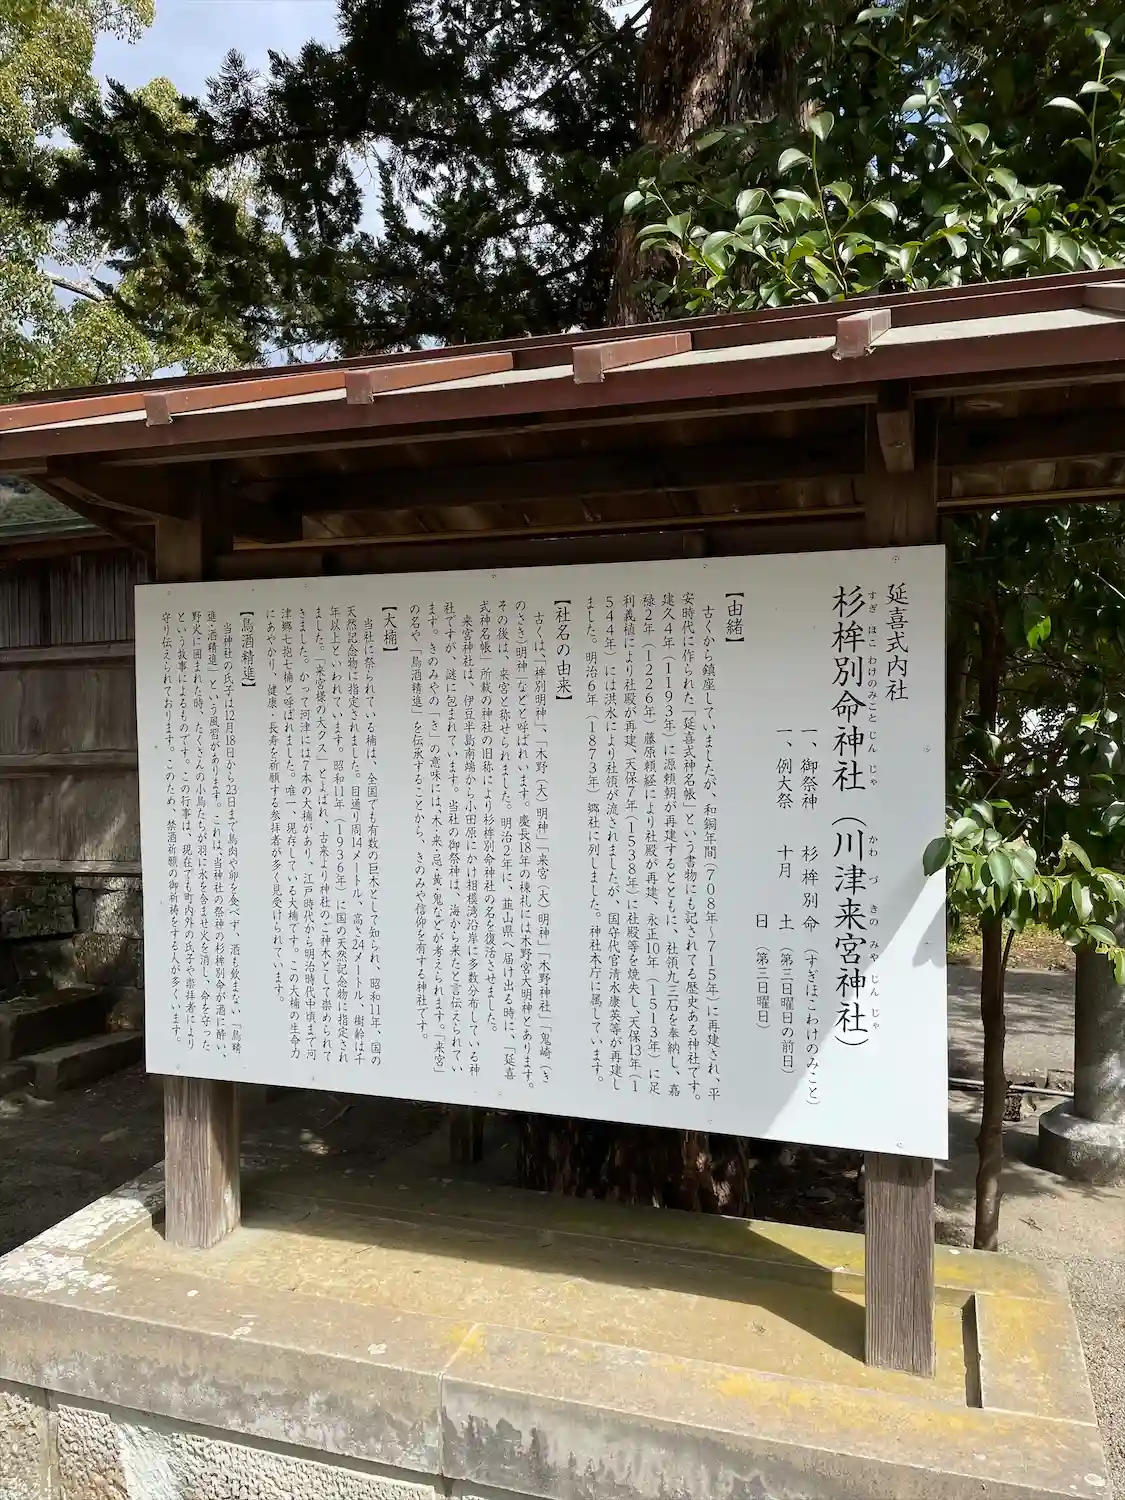 延喜式内社
杉桙別命神社（川津来宮神社）
すぎ ほこ わけのみこと じん じゃ　かわ づ きの みや じん じゃ
一、御祭神　杉桙別命（すぎほこわけのみこと）
一、例大祭　十月　土（第三日曜日の前日）
日（第三日曜日）
【由緒】
古くから鎮座していましたが、和銅年間（708年～715年）に再建され、平
安時代に作られた「延喜式神名帳」という書物にも記されてる歴史ある神社です。
建久4年（1193年）に源頼朝が再建するとともに、社領九三石を奉納し、嘉
禄2年（1226年）藤原頼経により社殿が再建、永正10年（1513年）に足
利義植により社殿が再建、天保7年（1538年）に社殿等を焼失し、天保13年（1
544年）には洪水により社領が流されましたが、国守代官清水康英等が再建し
ました。明治6年（1873年）郷社に列しました。神社本庁に属しています。
【社名の由来】
古くは、「桙別明神」、「木野（大）明神」「来宮（大）明神」「木野神社」「鬼崎（き
のさき）明神」などと呼ばれいます。慶長18年の棟札には木野宮大明神とあります。
その後は、来宮と称せられました。明治2年に、韮山県へ届け出る時に、「延喜
式神名帳」所載の神社の旧称により杉桙別命神社の名を復活させました。
来宮神社は、伊豆半島南端から小田原にかけ相模湾沿岸に多数分布している神
社ですが、謎に包まれています。当社の御祭神は、海から来たと言伝えられてい
ます。きのみやの「き」の意味には、木・来・忌・黄・鬼などが考えられます。「来宮」
の名や、「鳥酒精進」を伝承することから、きのみや信仰を有する神社です。
【大楠】
当社に祭られている楠は、全国でも有数の巨木として知られ、昭和11年、国の
天然記念物に指定されました。目通り周14メートル、高さ24メートル、樹齢は千
年以上といわれています。昭和11年（1936年）に国の天然記念物に指定され
ました。「来宮様の大クス」とよばれ、古来より神社のご神木として崇められて
きました。かって河津には7本の大楠があり、江戸時代から明治時代中頃まで河
津郷七抱七楠と呼ばれました。唯一、現存している大楠です。この大楠の生命力
にあやかり、健康・長寿を祈願する参拝者が多く見受けられています。
【鳥酒精進】
当神社の氏子は12月18日から23日まで鳥肉や卵を食べず、酒も飲まない「鳥精
進・酒精進」という風習があります。これは、当神社の祭神の杉桙別命が酒に酔い、
野火に囲まれた時、たくさんの小鳥たちが羽に水を含ませ火を消し、命を守った
という故事によるものです。この行事は、現在でも町内外の氏子や崇拝者により
守り伝えられております。このため、禁酒祈願の御祈祷をする人が多くいます。